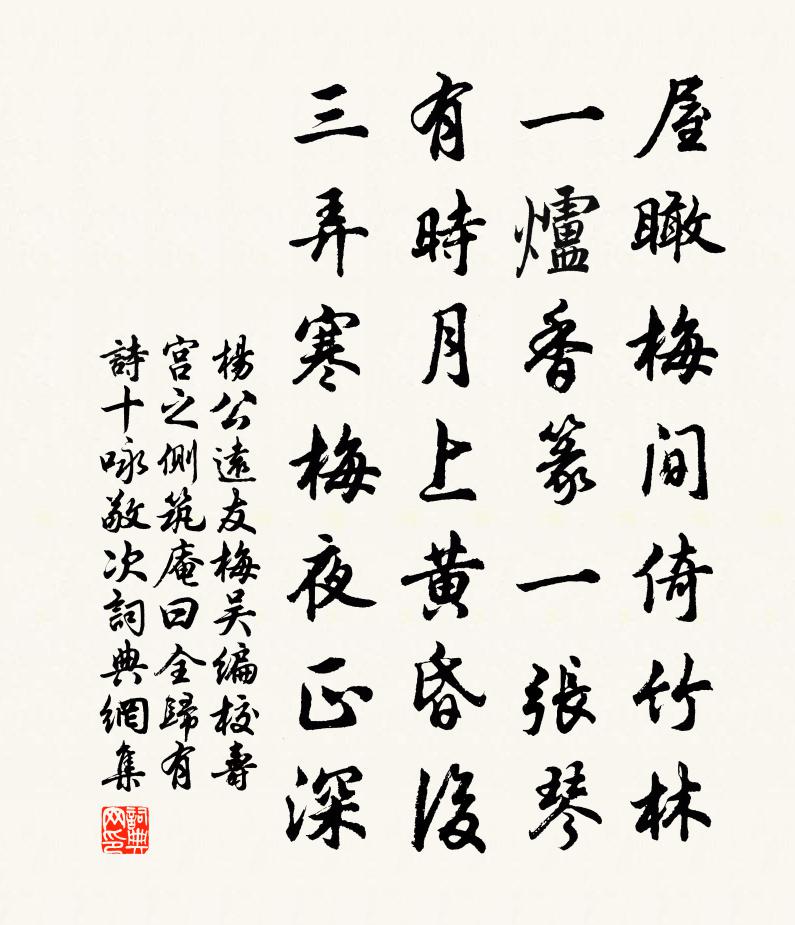 屋瞰梅間倚竹林
一爐香篆一張琴
有時月上黃昏後
三弄寒梅夜正深
楊公遠友梅吴編校壽
宮之側筑庵曰全歸有
詩十咏敬次詞典網集
詞典
网印